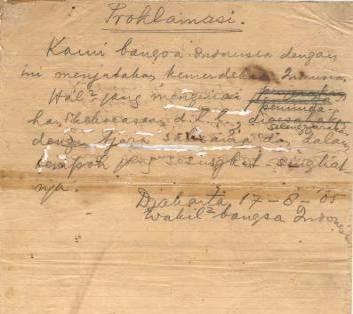 Proklamasi.
Kami bangsa Indonesia dengan
ini menjatakan kemerdekaan Indonesia.
Hal² jang mengenai
pemindahan
kekoeasaan d.l.l., diselenggarakan
dengan tjara seksama dan dalam
tempoh jang sesingkat-singkat
nja.
Djakarta 17 - 8 - '05
Wakil² bangsa Indonesia